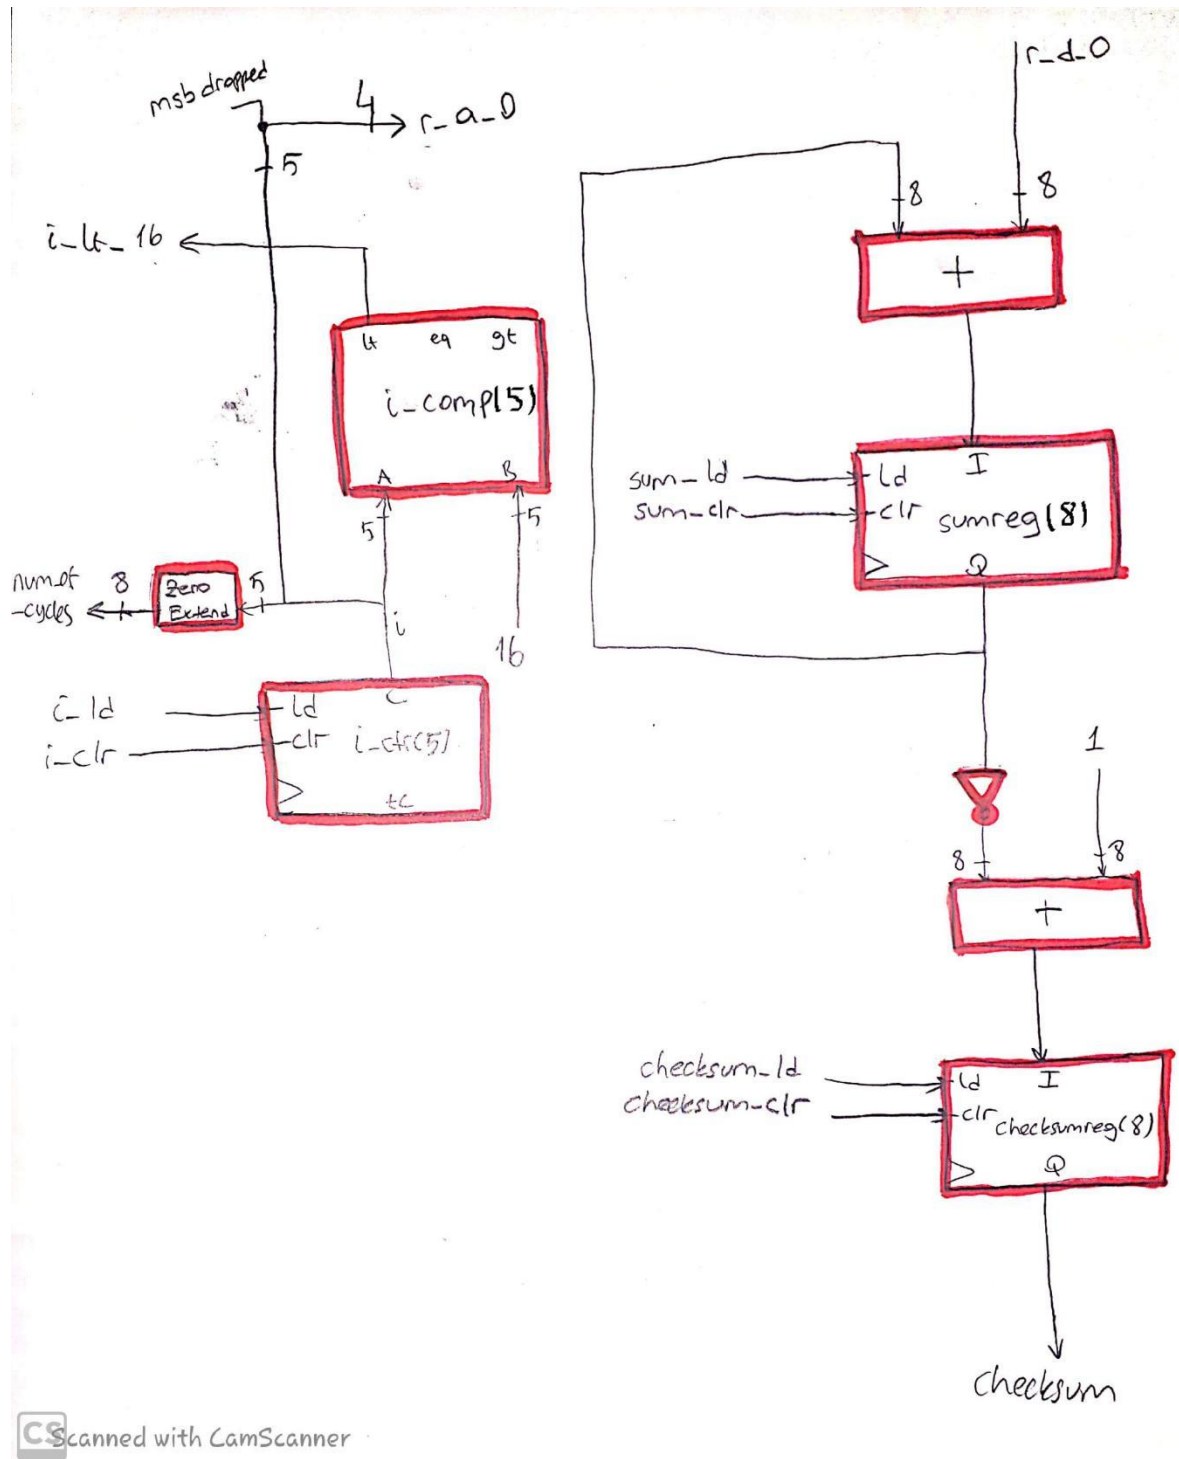 msb dropped
4
r_a_0
5
i_lt_16
lt eq gt
i_comp(5)
A B
5 5
16
num_of
_cycles
8
Zero
Extend
5
i
i_ld
i_clr
ld
clr
C
i_ctr(5)
tc
r_d_0
8 8
+
sum_ld
sum_clr
ld
clr
I
sumreg(8)
Q
1
8 8
+
checksum_ld
checksum_clr
ld
clr
I
checksumreg(8)
Q
checksum
CS Scanned with CamScanner